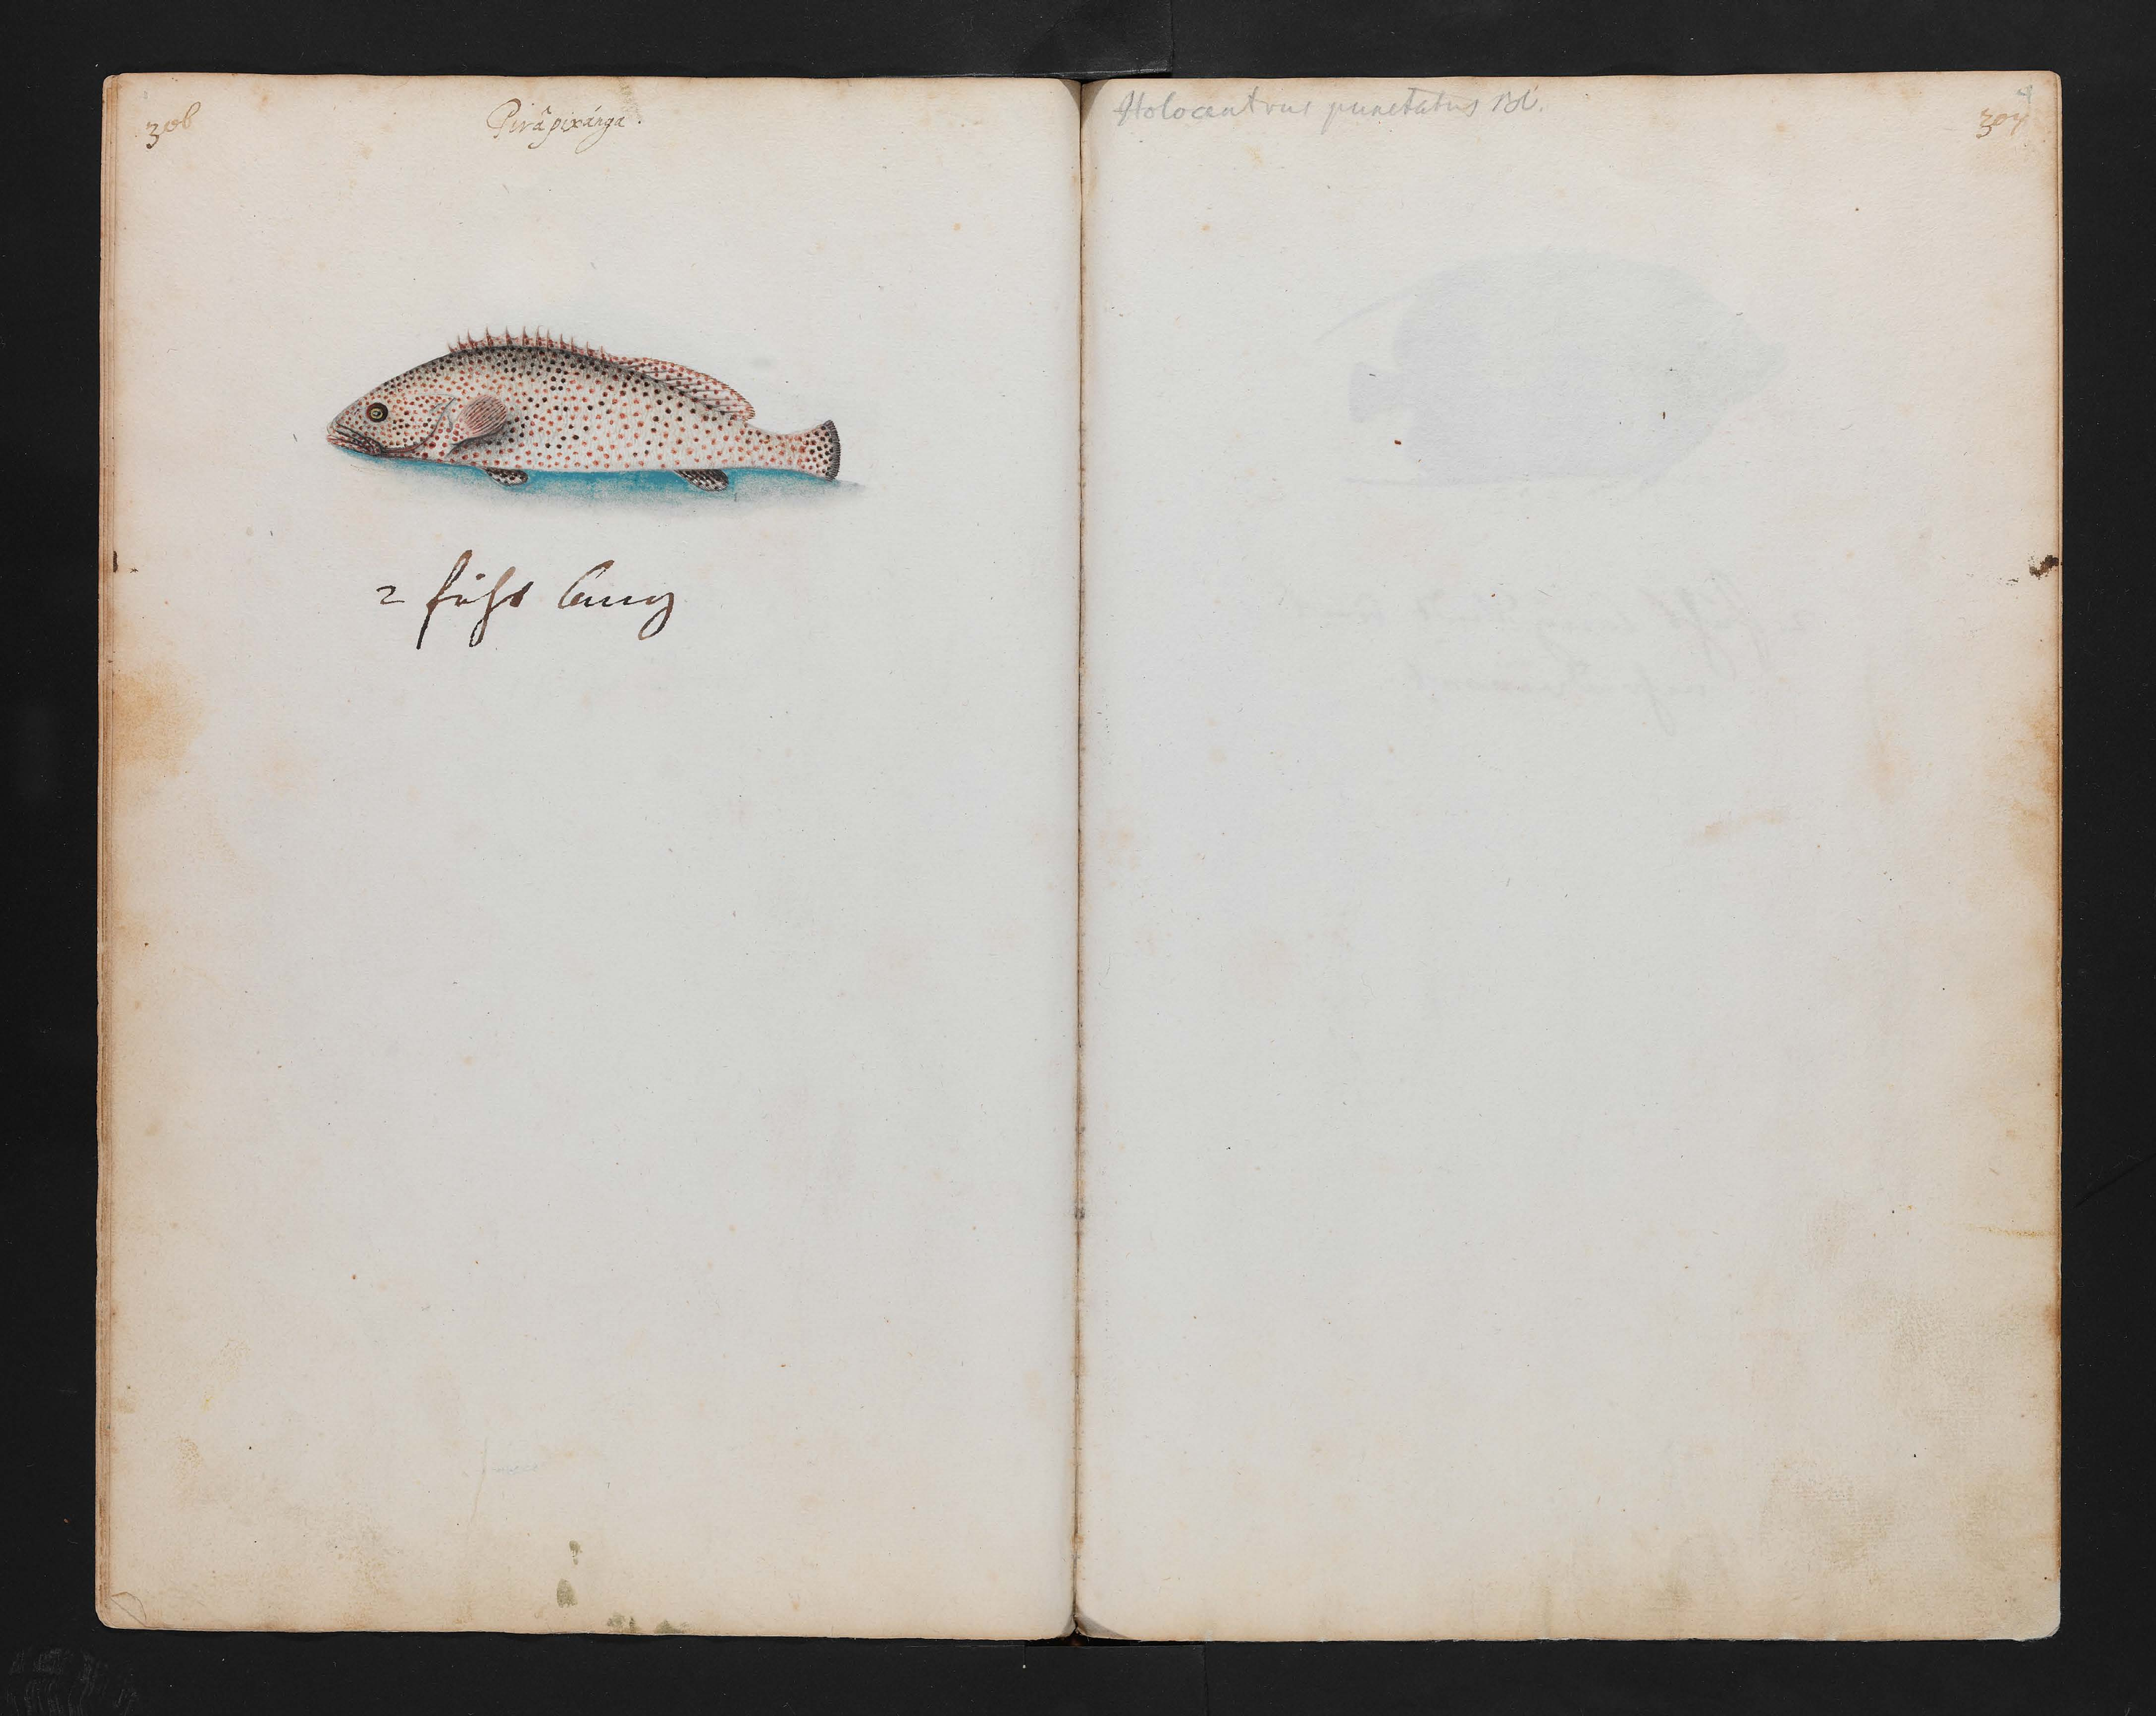 306
Pirâpixánga.
2 fuhs lang
Holocentrus punctatus Bl.
307